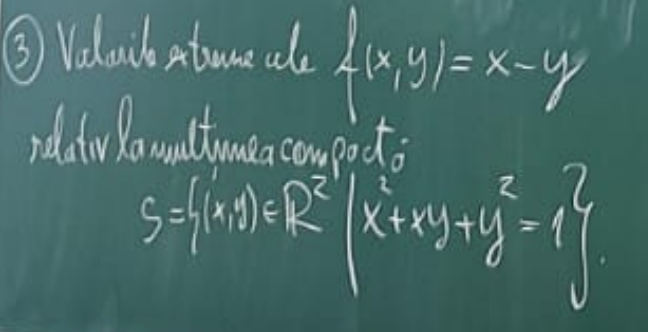 ③ Valorile extreme ale f(x,y) = x - y
relativ la mulțimea compactă
S = {(x,y) ∈ ℝ² | x² + xy + y² = 1}.